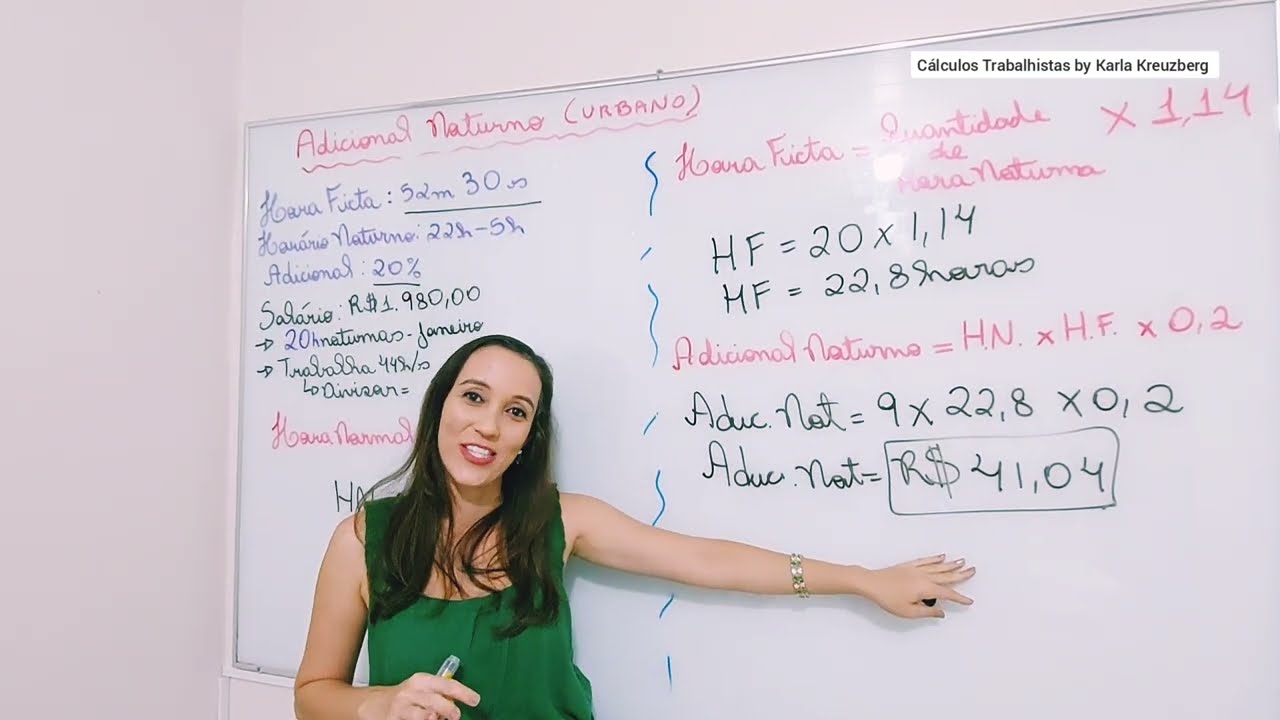 Cálculos Trabalhistas by Karla Kreuzberg
Adicional Noturno (URBANO)
Hora Ficta: 52m 30s
Horário Noturno: 22h-5h
Adicional: 20%
Salário: R$1.980,00
→ 20h noturnas - Janeiro
→ Trabalha 44h/s
↳ Divisor =
Hora Normal
Hora Ficta = Quantidade de Hora Noturna x 1,14
HF = 20 x 1,14
HF = 22,8 horas
Adicional Noturno = H.N. x H.F. x 0,2
Adic. Not = 9 x 22,8 x 0,2
Adic. Not = R$ 41,04